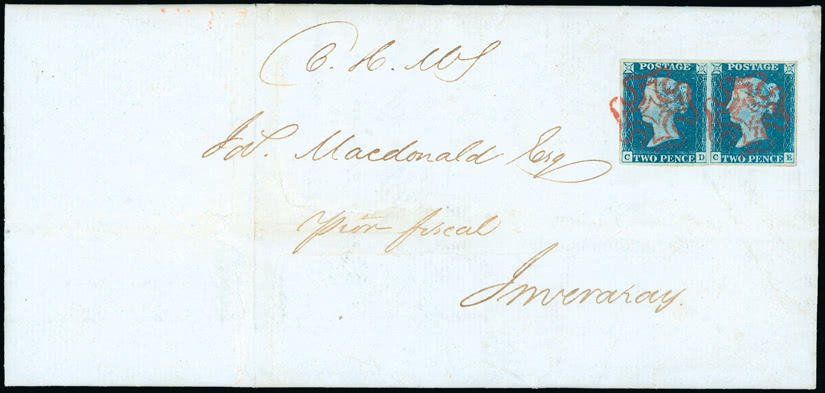 O. H. M S
POSTAGE POSTAGE
C D C E
TWO PENCE TWO PENCE
Jas. Macdonald Esq
fiscal
Inveraray.